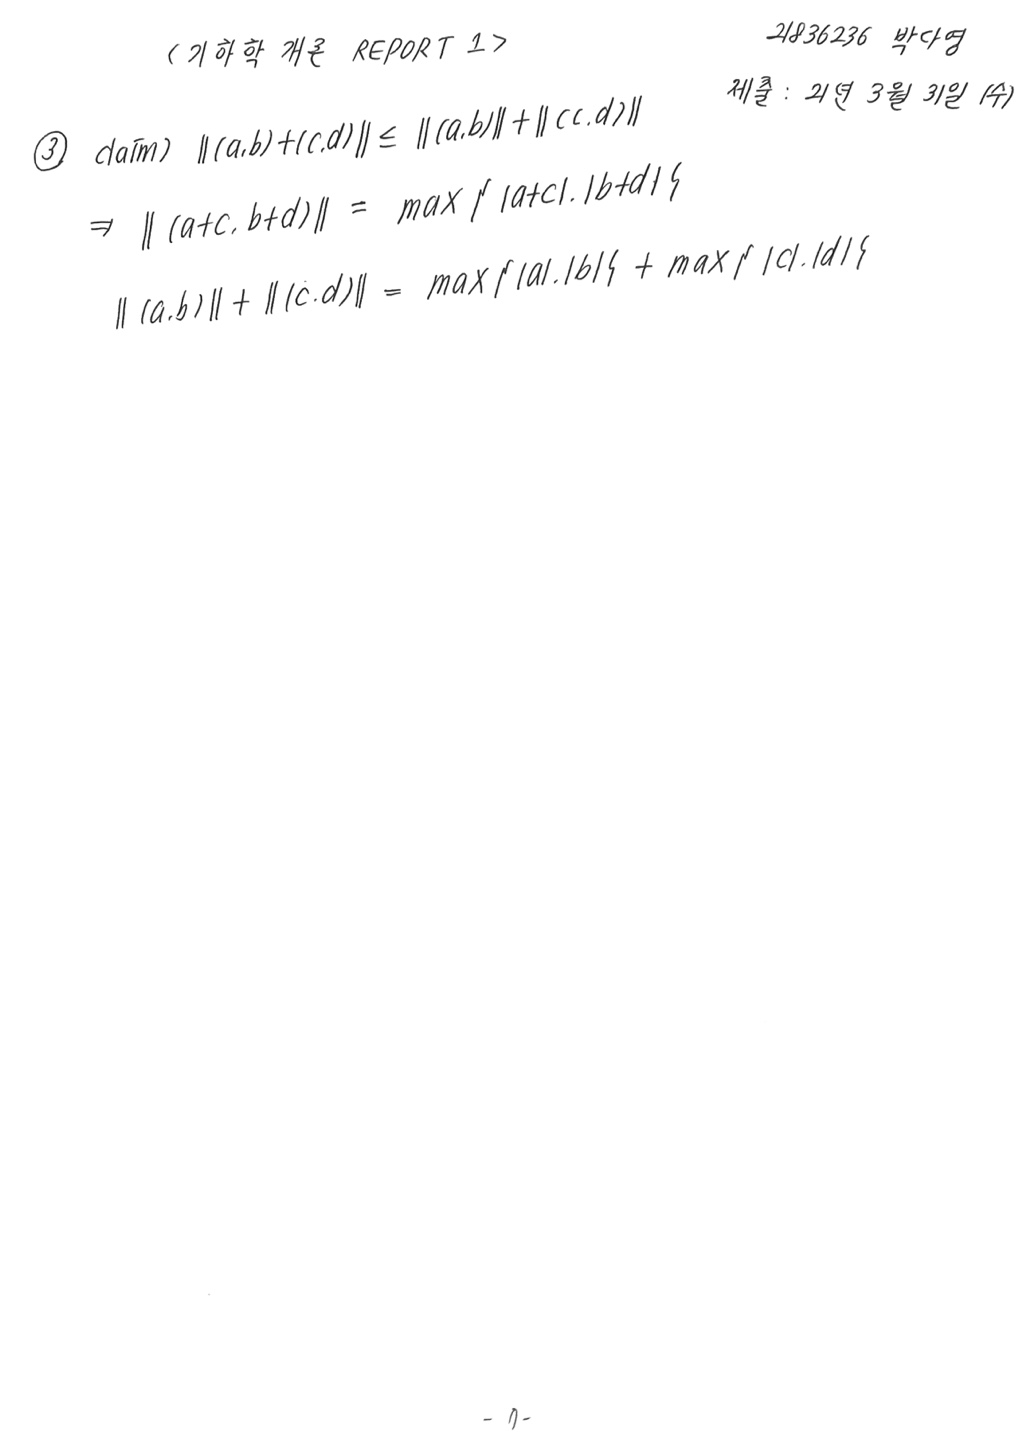 <기하학 개론 REPORT 1>
21836236 박다영
제출 : 21년 3월 31일 (수)
③ claim) ||(a,b)+(c,d)|| ≤ ||(a,b)||+||(c,d)||
⇒ ||(a+c, b+d)|| = max{|a+c|, |b+d|}
||(a,b)|| + ||(c,d)|| = max{|a|,|b|} + max{|c|,|d|}
- 7 -